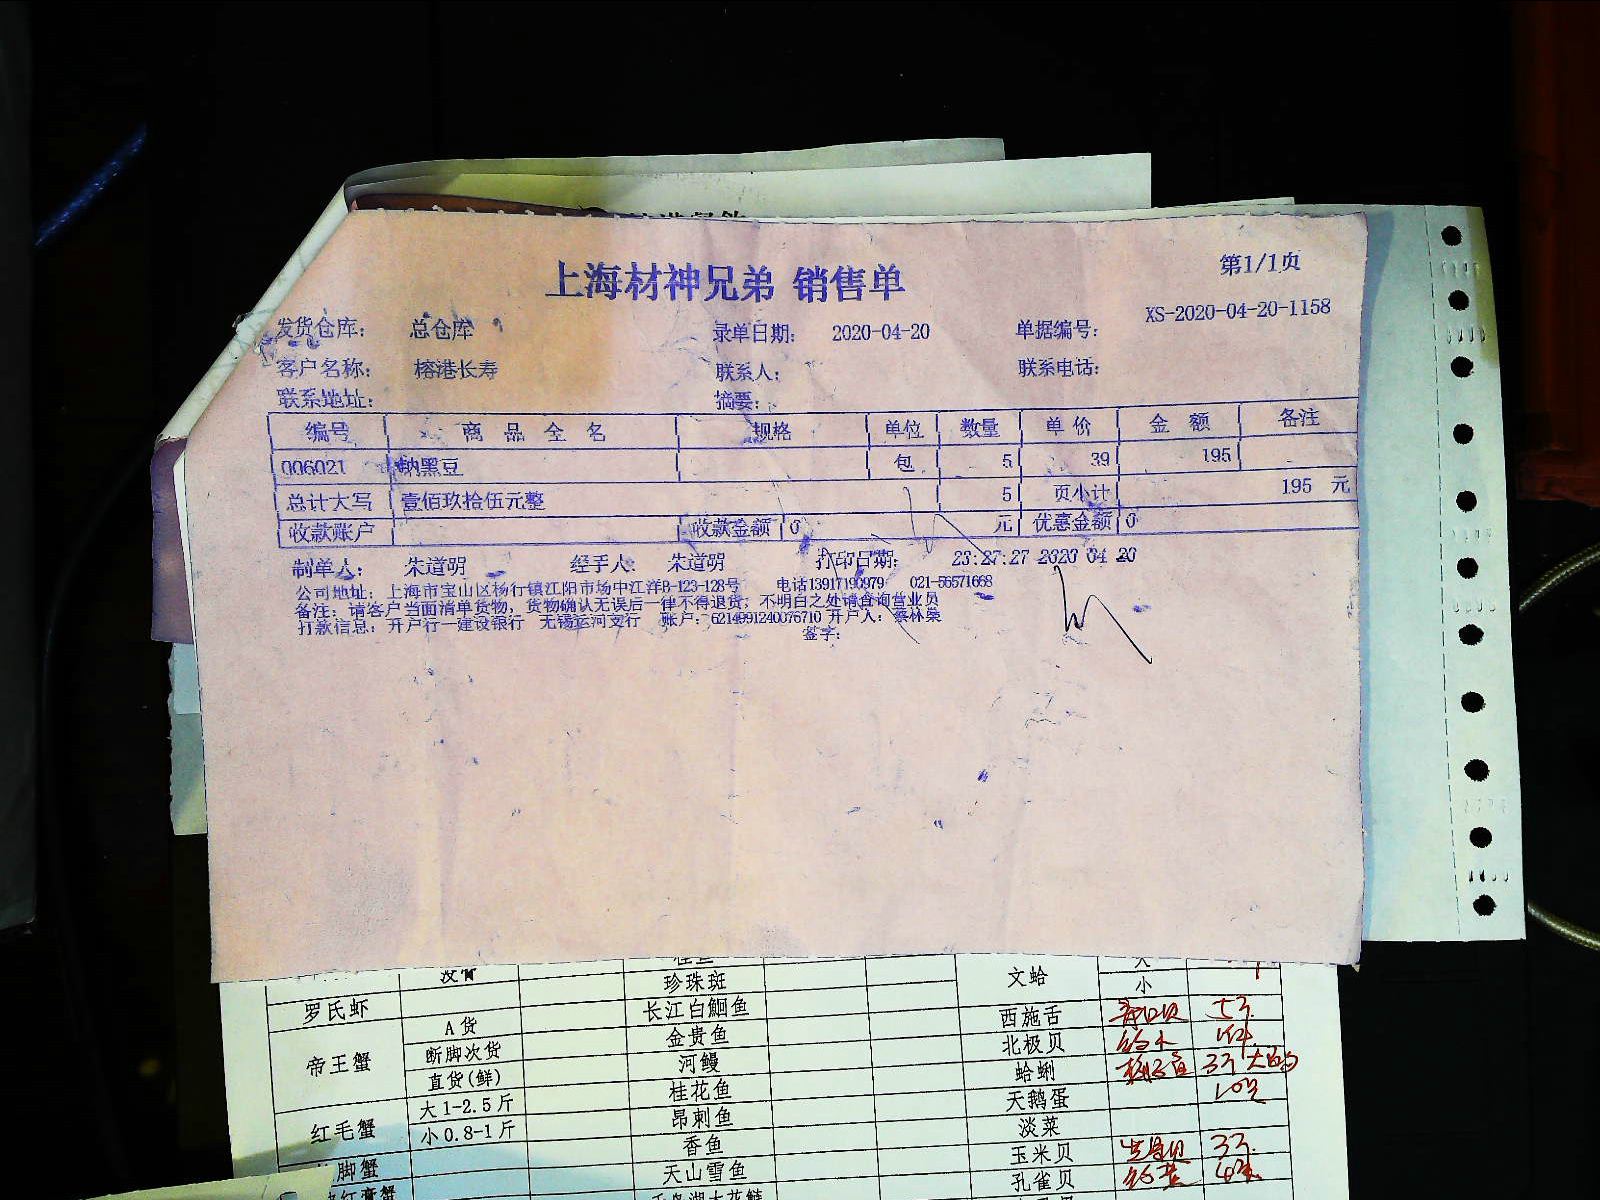 上海材神兄弟 销售单
第1/1页
发货仓库: 总仓库 录单日期: 2020-04-20 单据编号: XS-2020-04-20-1158
客户名称: 榕港长寿 联系人: 联系电话:
联系地址: 摘要:
编号 商品全名 规格 单位 数量 单价 金额 备注
006021 黑豆 包 5 39 195
总计大写 壹佰玖拾伍元整 5 页小计 195 元
收款账户 收款金额 0 元 优惠金额 0
制单人: 朱道明 经手人: 朱道明 打印日期: 23:27:27 2020 04 20
公司地址: 上海市宝山区杨行镇江阳市场中江洋B-123-128号 电话13917190979 021-56571668
备注: 请客户当面清单货物, 货物确认无误后一律不得退货, 不明白之处请查询营业员
打款信息: 开户行一建设银行 无锡运河支行 账户: 6214991240076710 开户人: 蔡林荣
签字:
珍珠斑 文蛤 小
罗氏虾 长江白鮰鱼 西施舌
帝王蟹 A货 金贵鱼 北极贝
断脚次货 河鳗 蛤蜊
直货(鲜) 桂花鱼 天鹅蛋
红毛蟹 大1-2.5斤 昂刺鱼 淡菜
小0.8-1斤 香鱼 玉米贝
脚蟹 天山雪鱼 孔雀贝